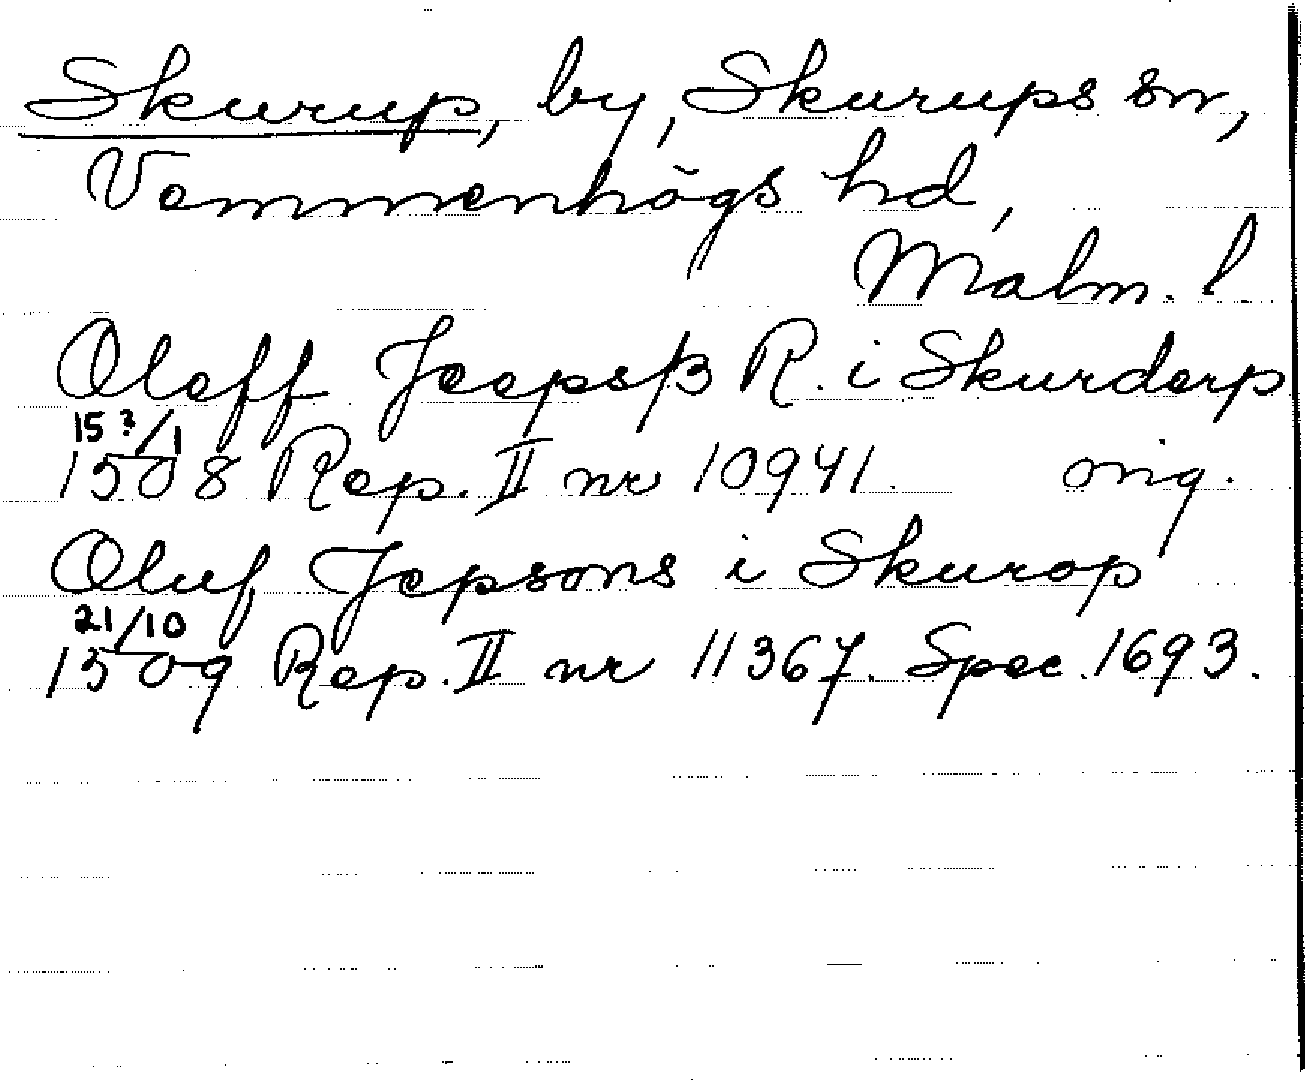 Skurup, by, Skurups sn,
Vemmenhögs hd,
Malm. l.
Oleff Jeepsß R. i Skurderp
15 ?/1
1508 Rep. II nr 10941. orig.
Oluf Jepsons i Skurop
21/10
1509 Rep. II nr 11367. Spec. 1693.